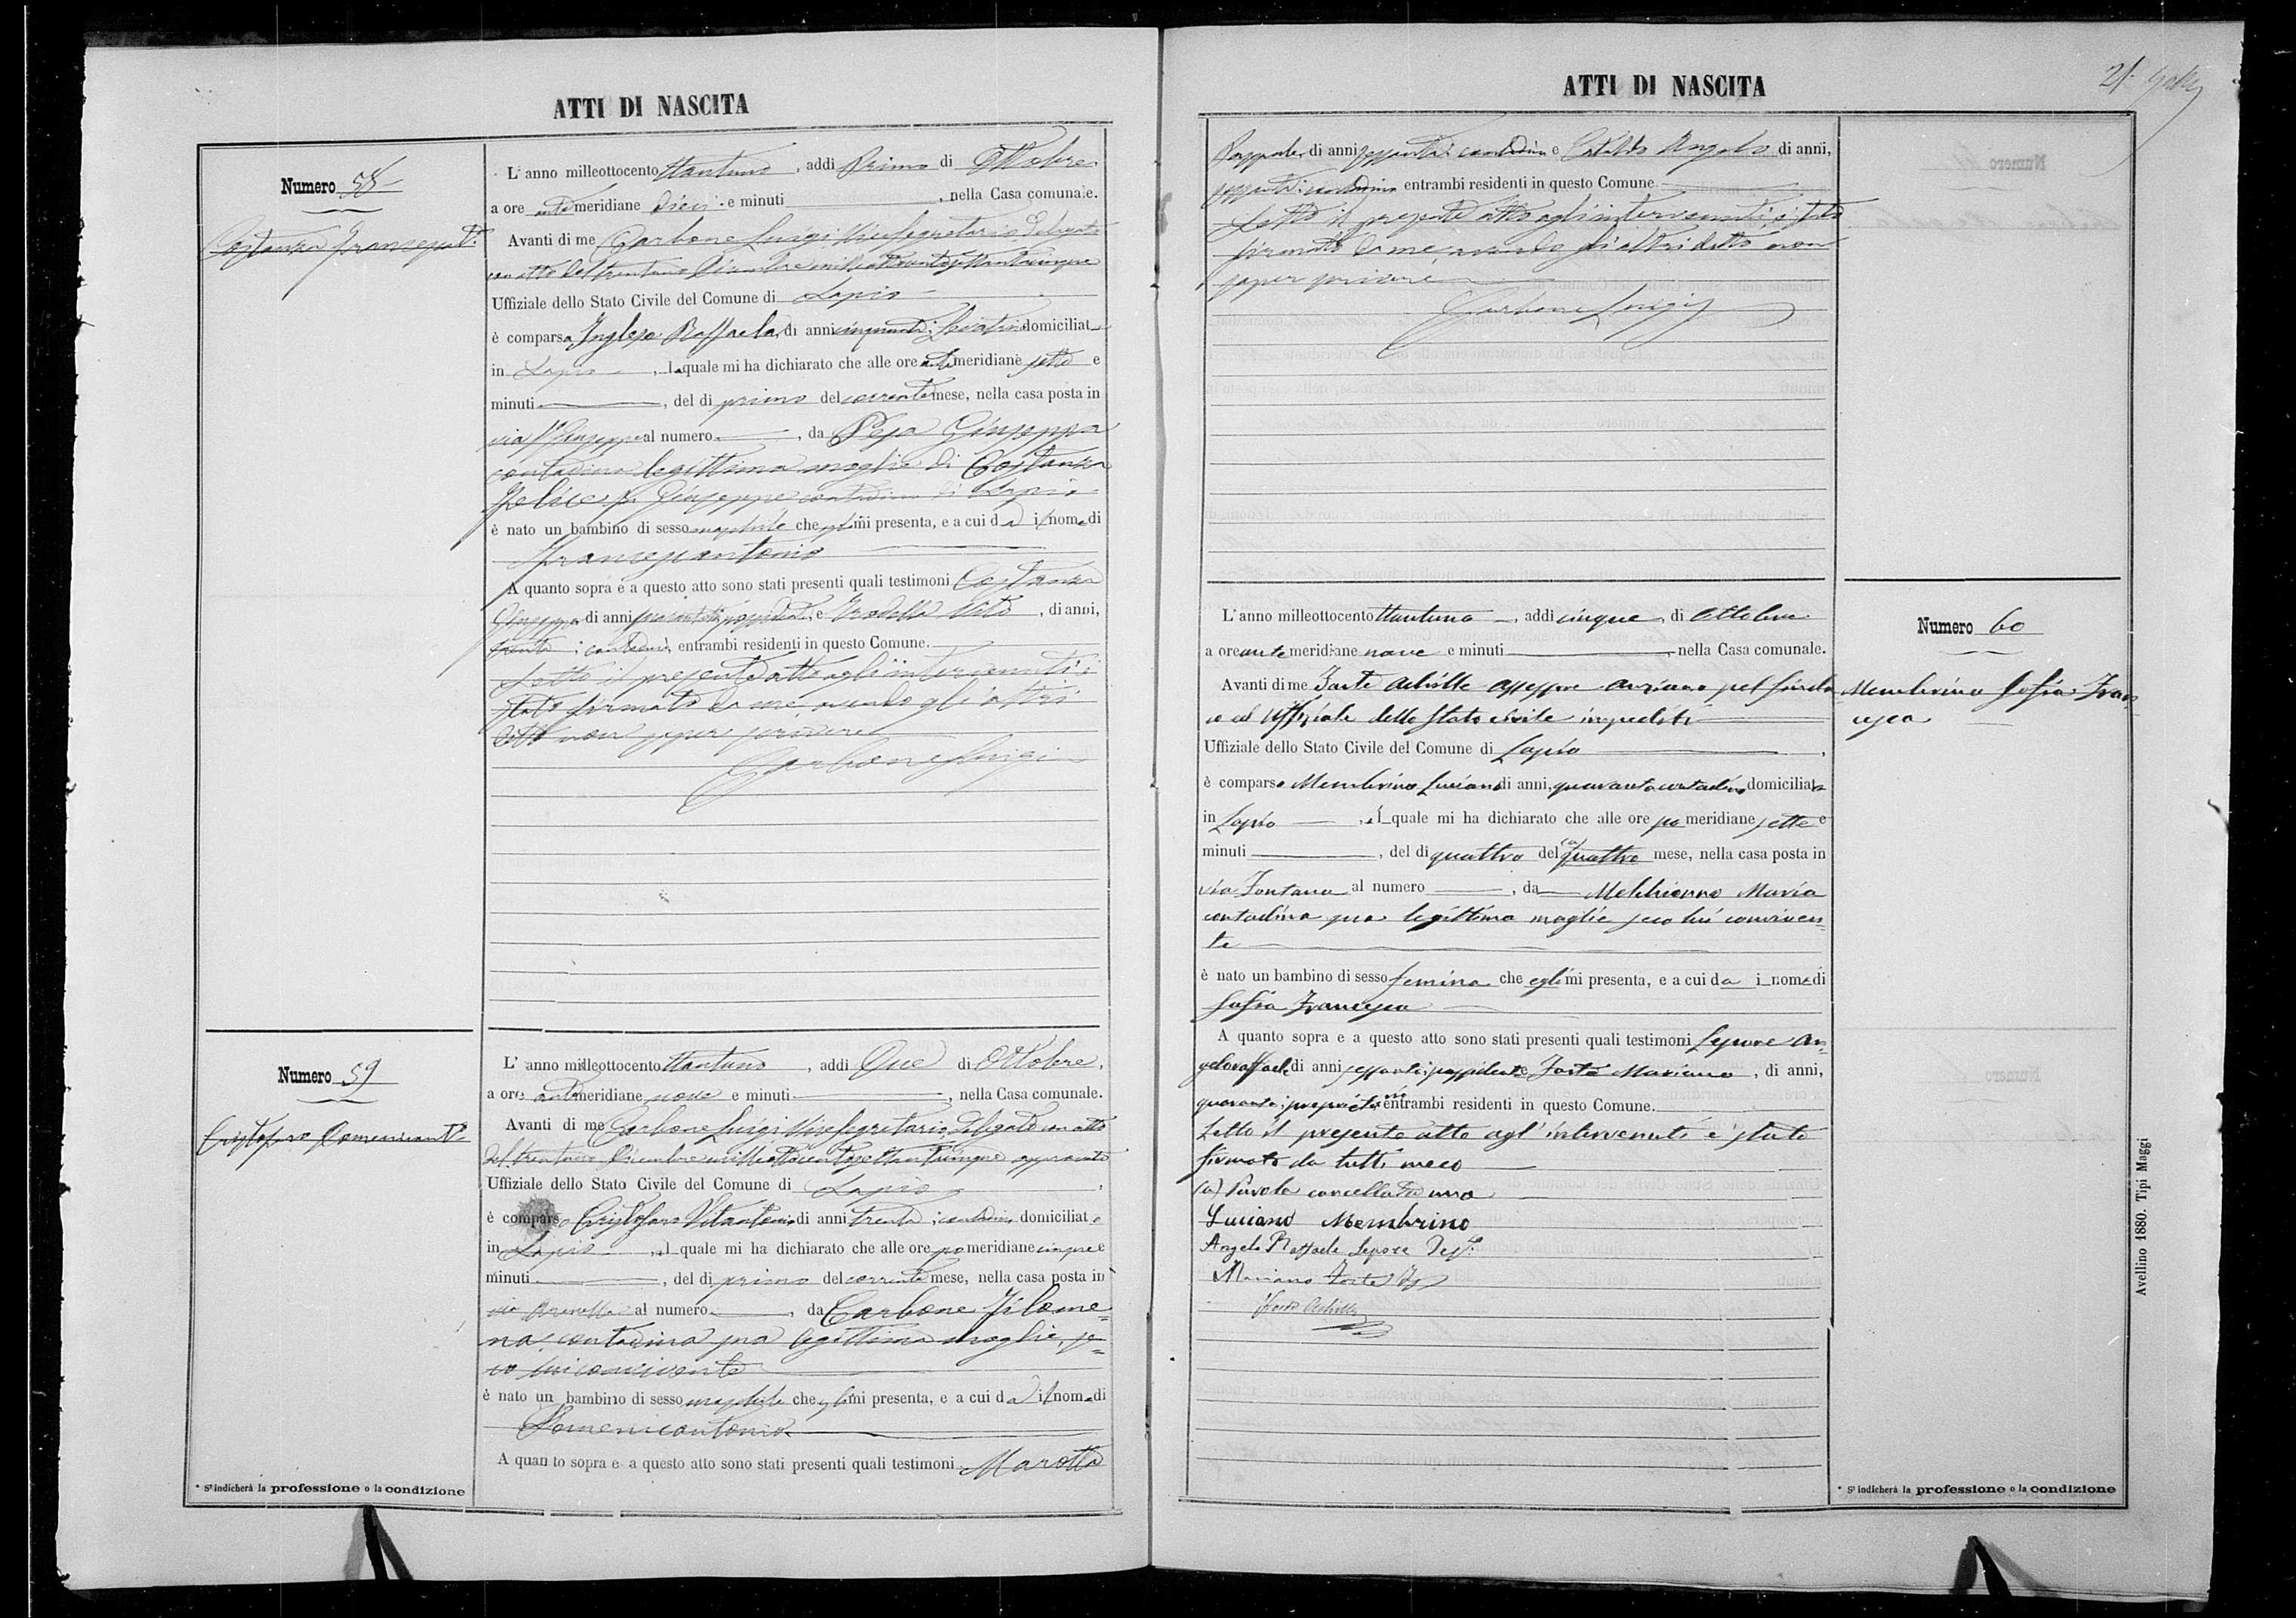 ATTI DI NASCITA
Numero 58
Costanza Francescant.º
L'anno milleottocento ttantuno, addi Primo di Ottobre
a ore antemeridiane dieci e minuti, nella Casa comunale.
Avanti di me Carbone Luigi Vicesegretario delegato
con atto del trentuno Dicembre milleottocentosettantacinque
Uffiziale dello Stato Civile del Comune di Lapio
è comparsa Inglese Raffaela, di anni cinquanta; Levatrice domiciliat
in Lapio, la quale mi ha dichiarato che alle ore antemeridiane sette e
minuti, del di primo del corrente mese, nella casa posta in
via S. Giuseppe al numero, da Pesa Giuseppa
contadina legittima moglie di Costanza
Felice fu Giuseppe contadino di Lapio
è nato un bambino di sesso maschile che mi presenta, e a cui dà il nome di
Francescantonio
A quanto sopra e a questo atto sono stati presenti quali testimoni Costanza
Giuseppe di anni possidente e Vito, di anni,
trenta; contadini, entrambi residenti in questo Comune.
Letto il presente atto agli intervenuti, è
stato firmato da me, avendo gli altri
detto non saper scrivere
Carbone Luigi
Numero 59
Cristofaro Domenicant.º
L'anno milleottocento ttantuno, addi Due di Ottobre,
a ore antemeridiane nove e minuti, nella Casa comunale.
Avanti di me Carbone Luigi Vicesegretario, delegato con atto
del trentuno Dicembre milleottocentosettantacinque approvato
Uffiziale dello Stato Civile del Comune di Lapio,
è comparso Cristofaro Vitantonio di anni trenta; contadino domiciliato
in Lapio, il quale mi ha dichiarato che alle ore pomeridiane cinque e
minuti, del di primo del corrente mese, nella casa posta in
via al numero, da Carbone Filome=
na, contadina sua legittima moglie, se=
co lui convivente
è nato un bambino di sesso maschile che egli mi presenta, e a cui dà il nome di
Domenicantonio
A quanto sopra e a questo atto sono stati presenti quali testimoni Marotta
* S'indicherà la professione o la condizione
ATTI DI NASCITA
21
Pasquale, di anni sessanta; contadino e Cataldo Angelo di anni,
sessanta; contadino entrambi residenti in questo Comune
Letto il presente atto agli intervenuti, è stato
firmato da me, avendo gli altri detto non
saper scrivere
Carbone Luigi
L'anno milleottocento ttantuno, addi cinque, di Ottobre
a ore antemeridiane nove e minuti, nella Casa comunale.
Avanti di me Forte Achille assessore anziano pel sinda
co ed Uffiziale dello stato civile impediti
Uffiziale dello Stato Civile del Comune di Lapio,
è comparso Membrino Luciano di anni, quaranta contadino domiciliato
in Lapio, il quale mi ha dichiarato che alle ore pomeridiane sette e
minuti, del di quattro del (a) quattro mese, nella casa posta in
via Fontana al numero, da Melchionno Maria
contadina sua legittima moglie seco lui conviven=
te
è nato un bambino di sesso femina che egli mi presenta, e a cui da i nome di
Sofia Francesca
A quanto sopra e a questo atto sono stati presenti quali testimoni Lepore An=
geloraffaele di anni sessanta; possidente e Forte Mariano, di anni,
quaranta; proprietario entrambi residenti in questo Comune.
Letto il presente atto agl'intervenuti è stato
firmato da tutti meco
(a) Parola cancellata una
Luciano Membrino
Angelo Raffaele Lepore Tes.
Mariano Forte
Forte Achille
Numero 60
Membrino Sofia Fran=
cesca
* S'indicherà la professione o la condizione
Avellino 1880. Tipi Maggi